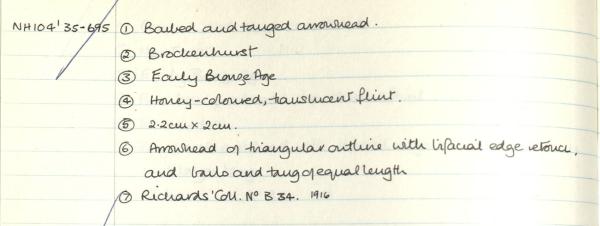 NH104' 35-695 ① Barbed and tanged arrowhead.
② Brockenhurst
③ Early Bronze Age
④ Honey-coloured, translucent flint.
⑤ 2.2cm x 2cm.
⑥ Arrowhead of triangular outline with bifacial edge retouch,
and barbs and tang of equal length
⑦ Richards' Coll. Nº B 34. 1916